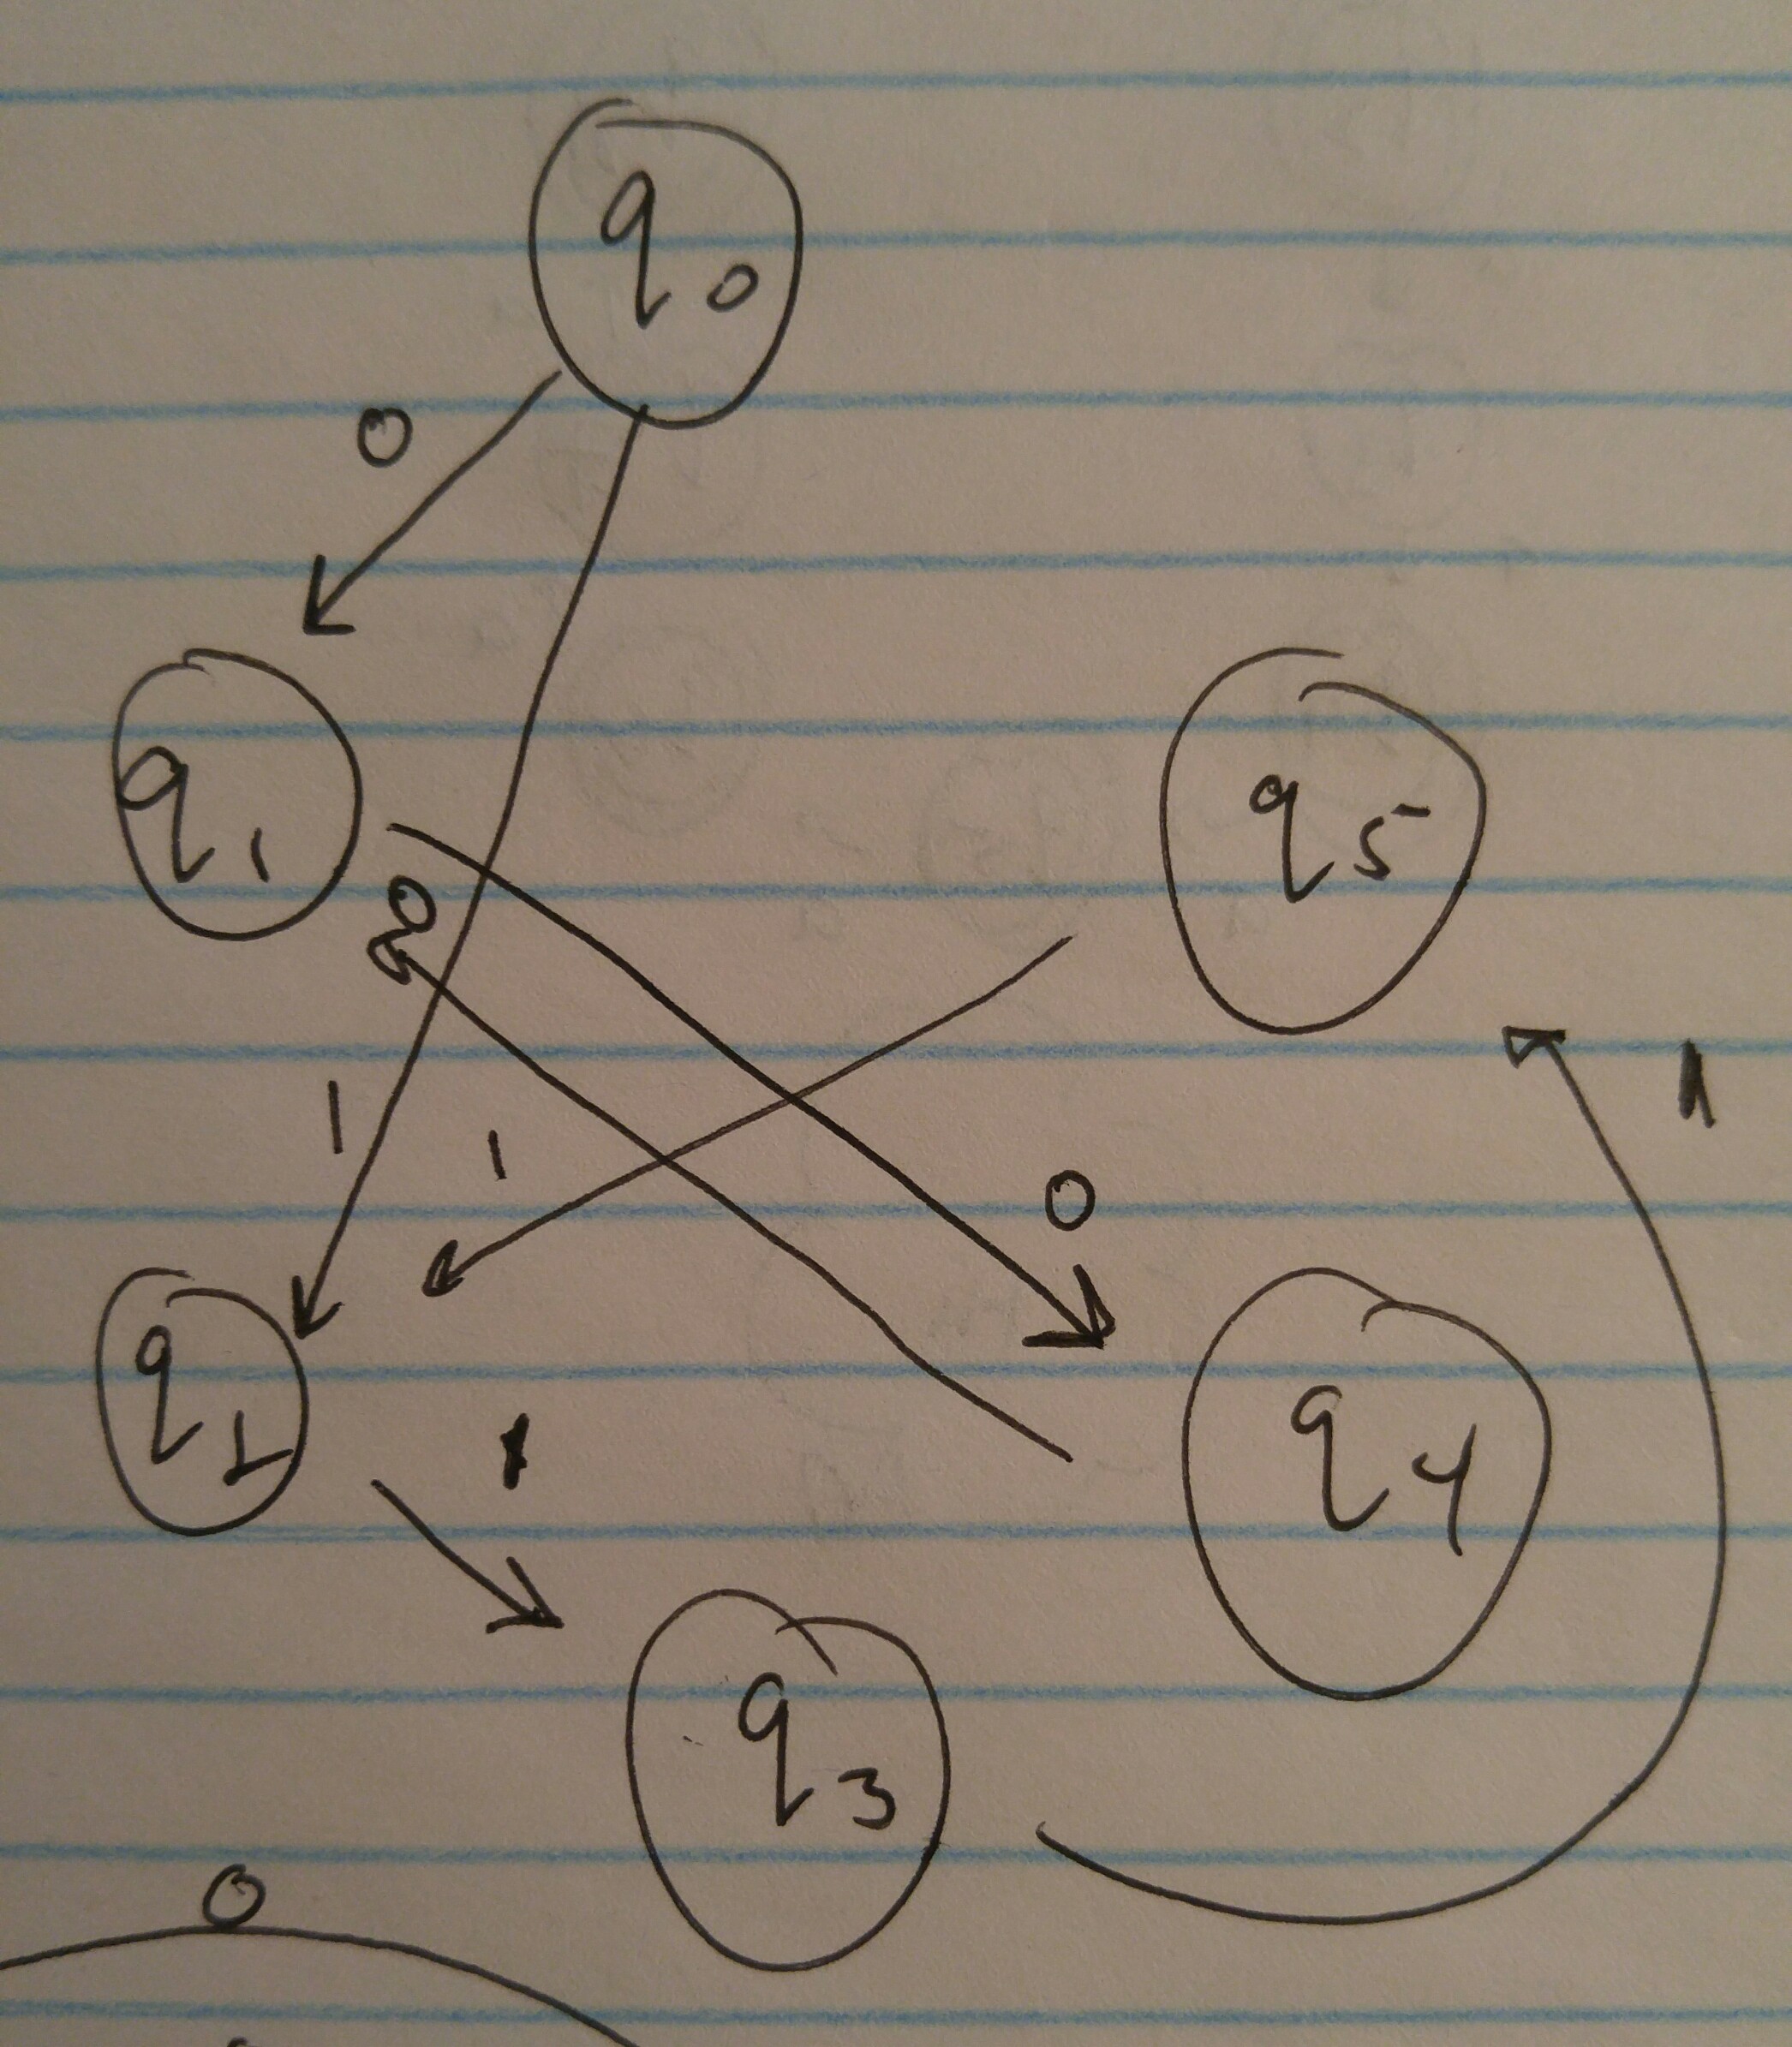 q0
0
q1
q5
0
1
1
1
0
q2
1
q4
q3
0